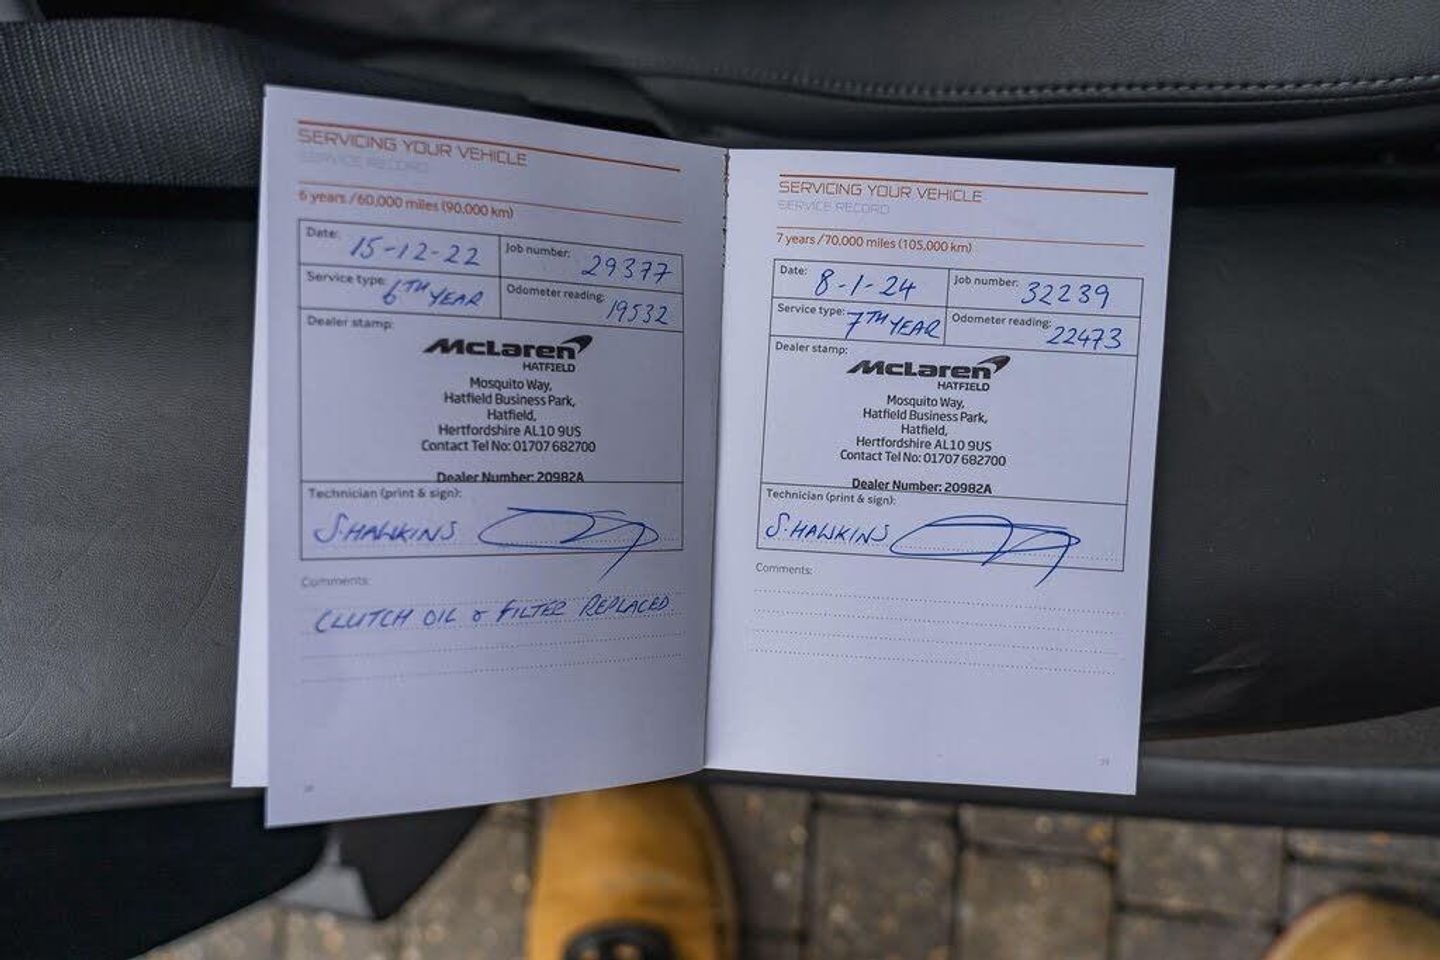 SERVICING YOUR VEHICLE
SERVICE RECORD
6 years /60,000 miles (90,000 km)
Date: 15-12-22
Job number: 29377
Service type: 6TH YEAR
Odometer reading: 19532
Dealer stamp:
McLaren
HATFIELD
Mosquito Way,
Hatfield Business Park,
Hatfield,
Hertfordshire AL10 9US
Contact Tel No: 01707 682700
Dealer Number: 20982A
Technician (print & sign):
S. HAWKINS
Comments:
CLUTCH OIL & FILTER REPLACED
SERVICING YOUR VEHICLE
SERVICE RECORD
7 years /70,000 miles (105,000 km)
Date: 8-1-24
Job number: 32239
Service type: 7TH YEAR
Odometer reading: 22473
Dealer stamp:
McLaren
HATFIELD
Mosquito Way,
Hatfield Business Park,
Hatfield,
Hertfordshire AL10 9US
Contact Tel No: 01707 682700
Dealer Number: 20982A
Technician (print & sign):
S. HAWKINS
Comments: